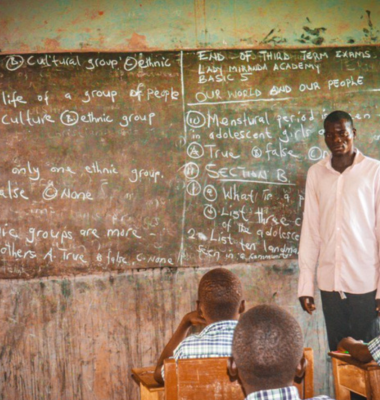 (B) Cultural group (C) ethnic
life of a group of people
Culture (D) ethnic group
only one ethnic group.
alse (C) None
groups are more -
others A. True B false, C. None
END OF THIRD TERM EXAMS.
LADY MIRANDA ACADEMY
BASIC 5
OUR WORLD AND OUR PEOPLE
(10) Menstural period is
in adolescent girls
(A) True (B) false
(11) SECTION B
1. (1) What is a
(2) List three c
of the adolesce
2. List ten landma
seen in a community